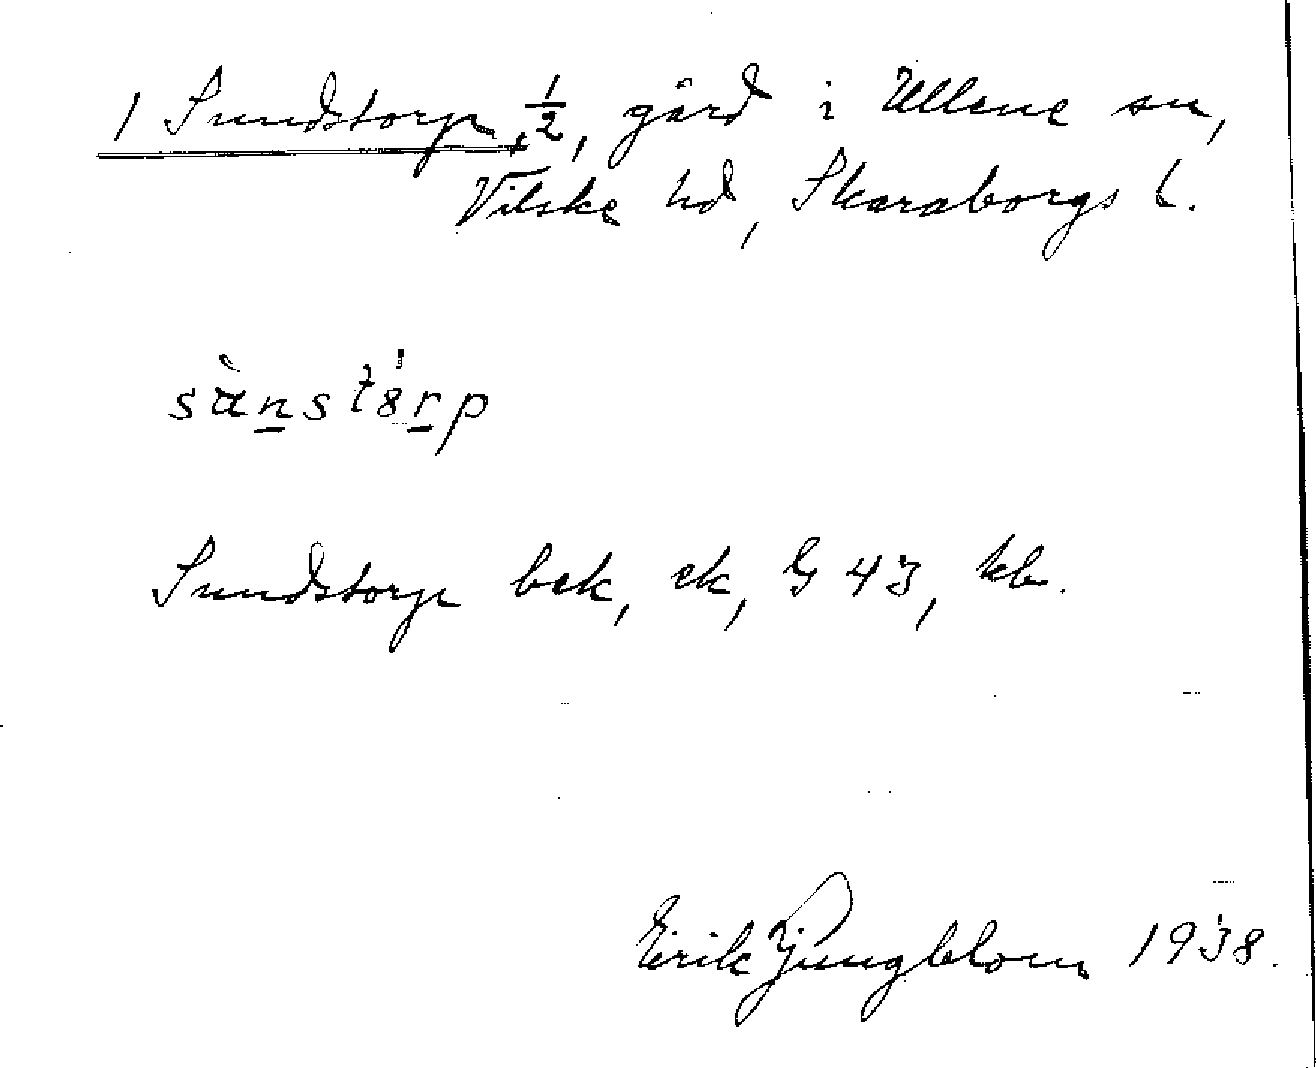 1 Sundstorp, 1/2, gård i Ullene sn,
Vilske hd, Skaraborgs l.
sànstȣrp
Sundstorp bek, ek, G 43, kb.
Erik Ljungblom 1938.